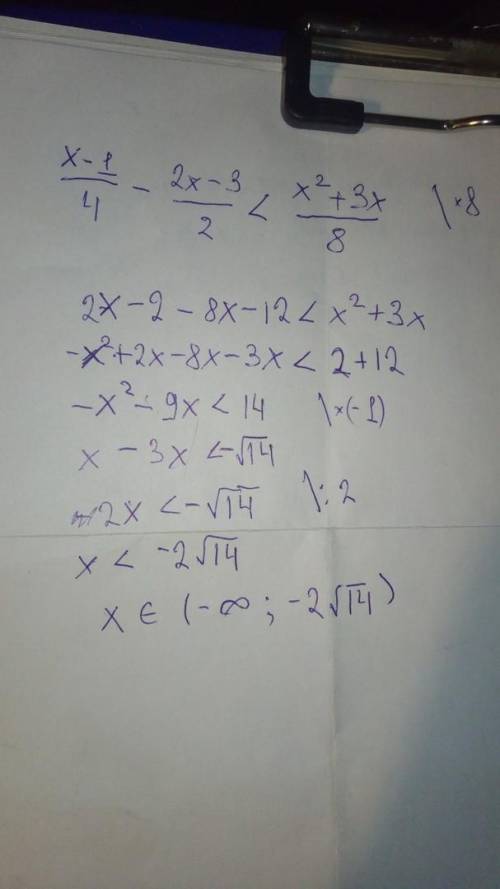 x-1/4 - 2x-3/2 < x²+3x/8 \×8
2x-2-8x-12<x²+3x
-x²+2x-8x-3x<2+12
-x²-9x<14 \×(-1)
x-3x<-√14
-2x<-√14 \:2
x<-2√14
x∈(-∞;-2√14)